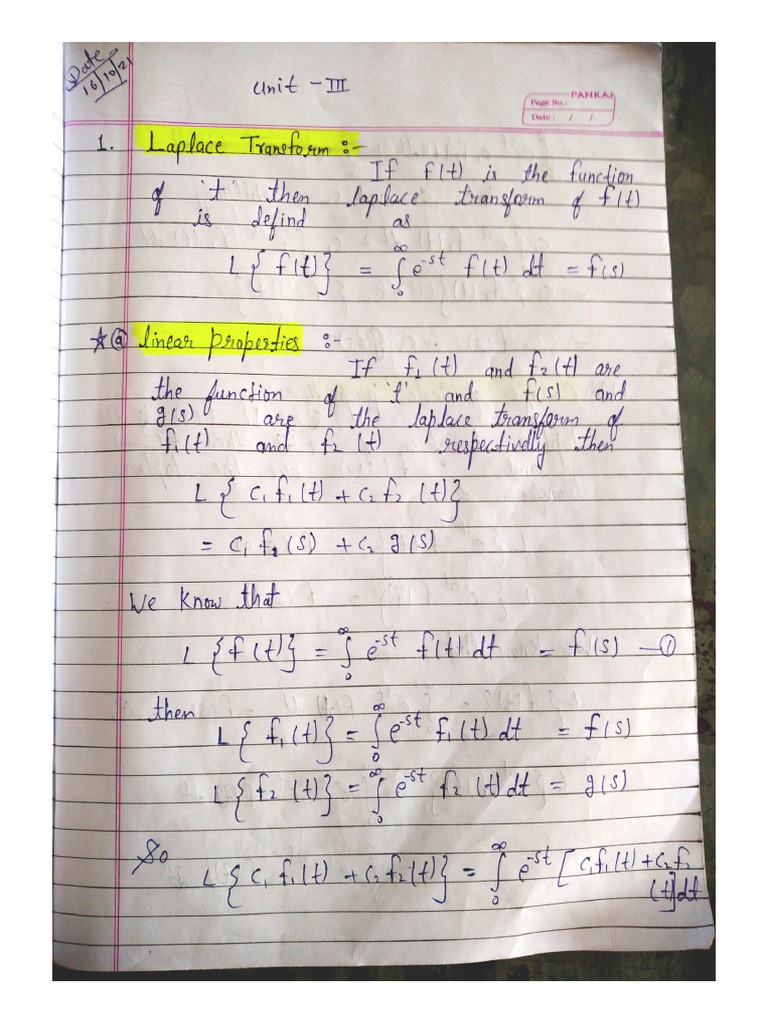 Date
16/10/21
Unit - III
PANKAJ
Page No.:
Date : / /
1. Laplace Transform :-
If f(t) is the function
of 't' then laplace transform of f(t)
is defind as
L{ f(t)} = ∫₀^∞ e^-st f(t) dt = f(s)
☆ⓐ linear properties :-
If f₁(t) and f₂(t) are
the function of 't' and f(s) and
g(s) are the laplace transform of
f₁(t) and f₂ (t) respectivdly then
L{ C₁ f₁(t) + C₂ f₂ (t)}
= C₁ f₁(s) + C₂ g(s)
We know that
L {f (t)} = ∫₀^∞ e^-st f(t) dt = f(s) —①
then
L{ f₁(t)} = ∫₀^∞ e^-st f₁(t) dt = f(s)
L{ f₂ (t)} = ∫₀^∞ e^-st f₂ (t) dt = g(s)
So
L{ C₁ f₁(t) + C₂ f₂(t)} = ∫₀^∞ e^-st [ C₁f₁(t) + C₂f₂
(t)]dt